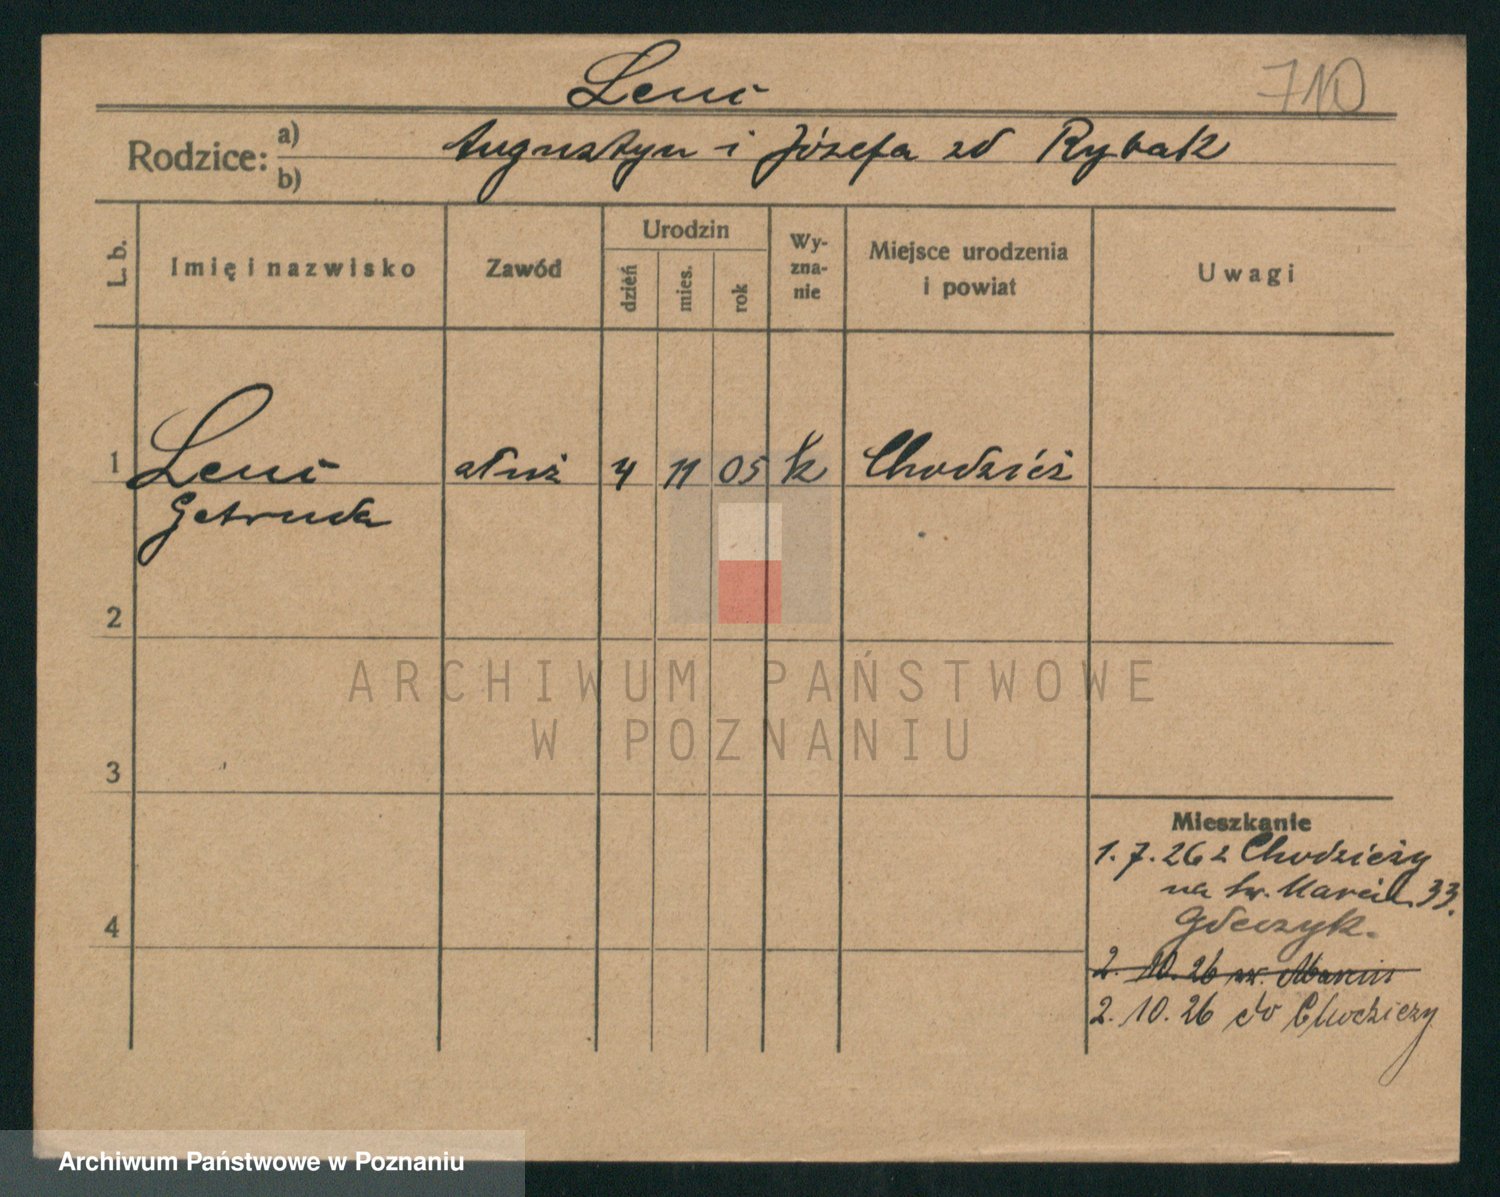 Leni
710
Rodzice: a) b)
Augustyn i Józefa zd Rybak
L. b.
Imię i nazwisko
Zawód
Urodzin
dzień
mies.
rok
Wy-
zna-
nie
Miejsce urodzenia
i powiat
Uwagi
1 Leni służ 4 11 05 k Chodzież
Getruda
2
3
4
Mieszkanie
1. 7. 26 z Chodzieży
na św. Marcin 33.
2. 10. 26 św. Marcin
2. 10. 26 do Chodzieży
ARCHIWUM PAŃSTWOWE
W POZNANIU
Archiwum Państwowe w Poznaniu